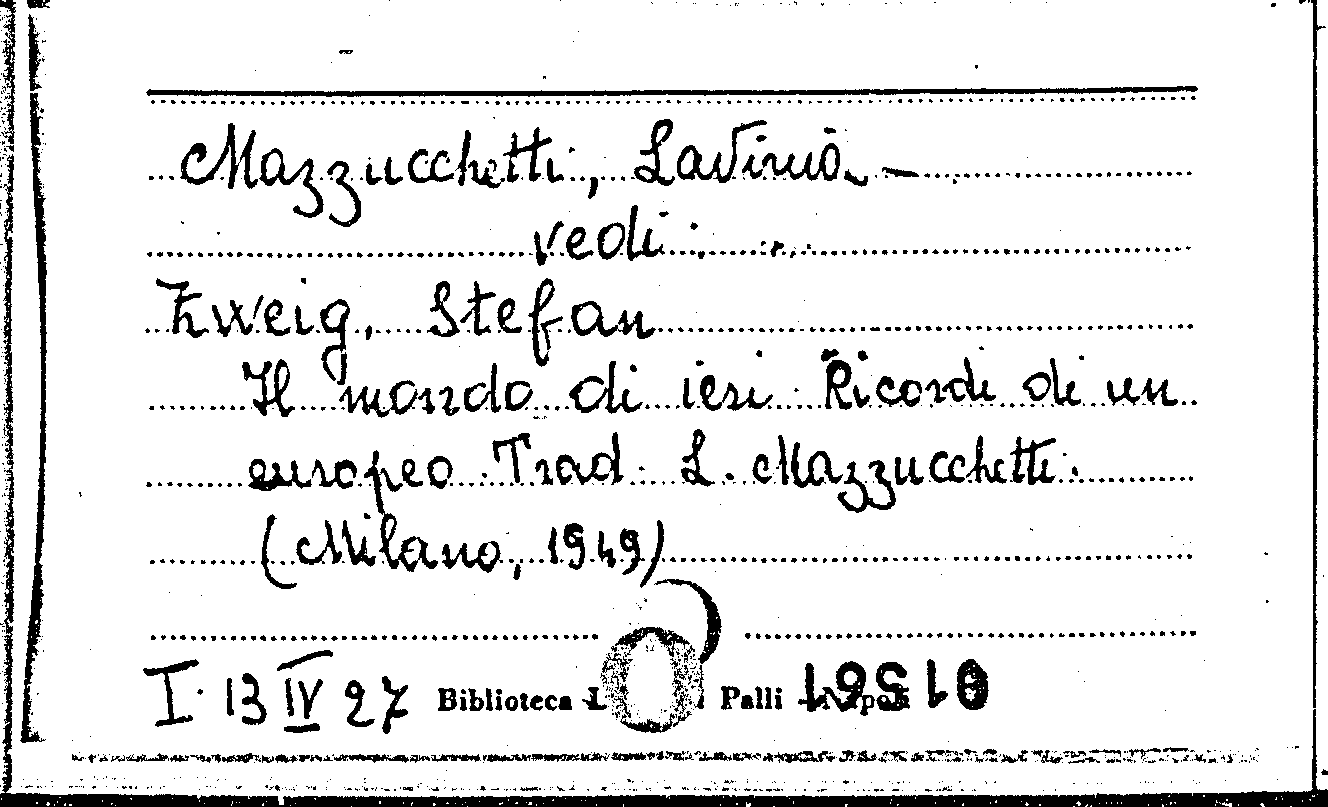 Mazzucchetti, Lavinia -
vedi:
Zweig, Stefan
Il mondo di ieri. Ricordi di un
europeo. Trad. L. Mazzucchetti.
(Milano, 1949)
I. 13 IV 27 Biblioteca Palli - Napoli